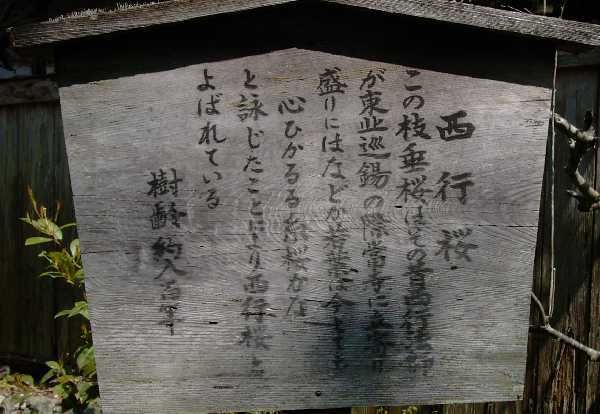 西行桜
この枝垂桜はその昔西行法師
が東北巡錫の際当寺に立寄り
盛りにはなどか若葉は今とても
心ひかるる糸桜かな
と詠じたことにより西行桜と
よばれている
樹齢約八百年